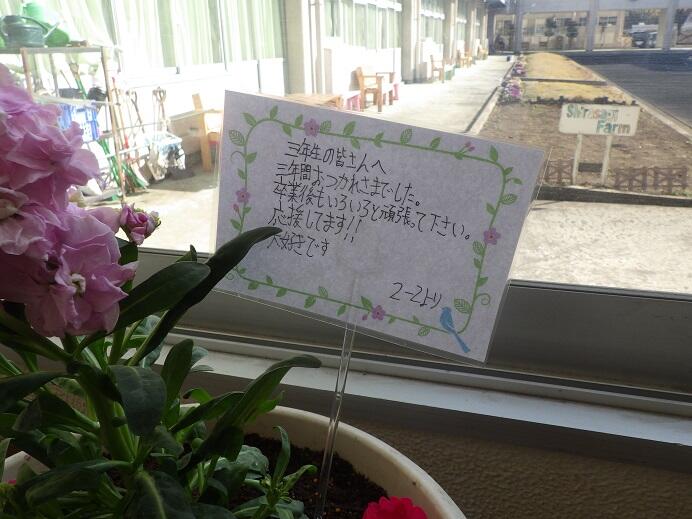 三年生の皆さんへ
三年間おつかれさまでした。
卒業後もいろいろと頑張って下さい。
応援してます!!
大好きです
2-2より
Shirasagi
Farm